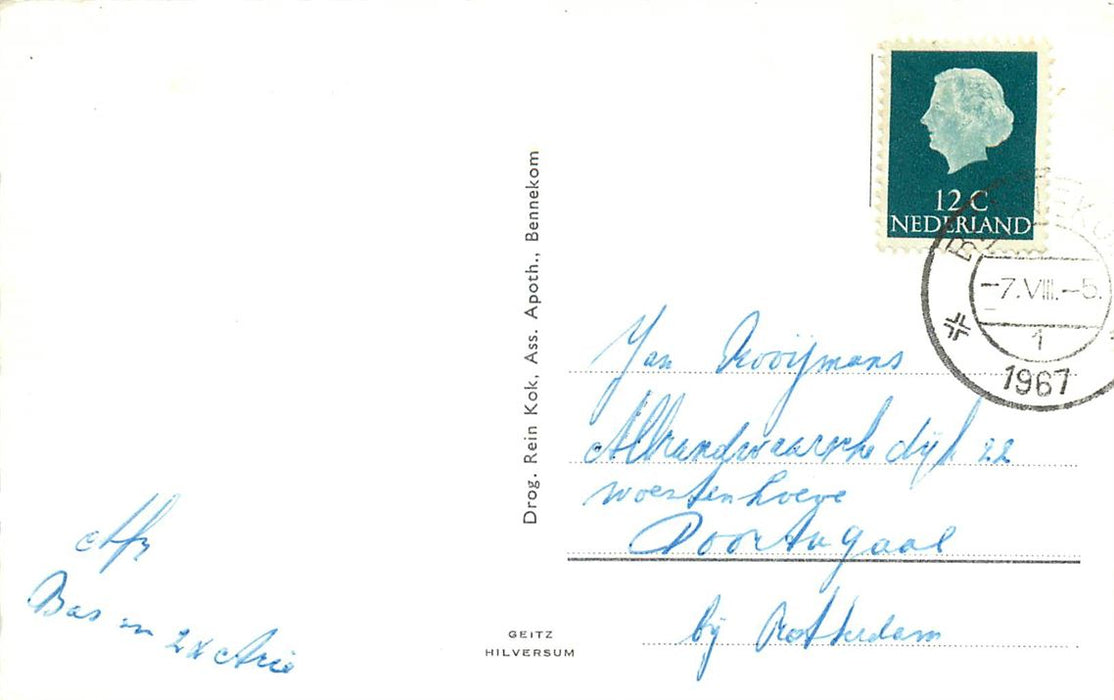 12 C
NEDERLAND
-7.VIII.-5.
1
1967
Drog. Rein Kok, Ass. Apoth., Bennekom
Jan Rooijmans
Albrandwaarsche dijk 22
Woestenhoeve
Poortugaal
bij Rotterdam
Bas en 2x Arie
GEITZ
HILVERSUM